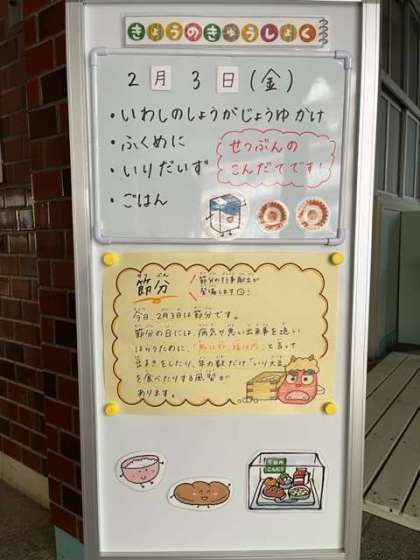 きょうのきゅうしょく
2月3日(金)
・いわしのしょうがじょうゆかけ
・ふくめに
・いりだいず
・ごはん
せつぶんの
こんだてです!
節分
せつぶん
節分の行事献立が
登場します!
今日、2月3日は節分です。
節分の日には、病気や悪い出来事を追い
はらうために、「鬼は外、福は内」と言って
豆まきをしたり、年の数だけ「いり大豆」
を食べたりする風習が
あります。
今日の
こんだて